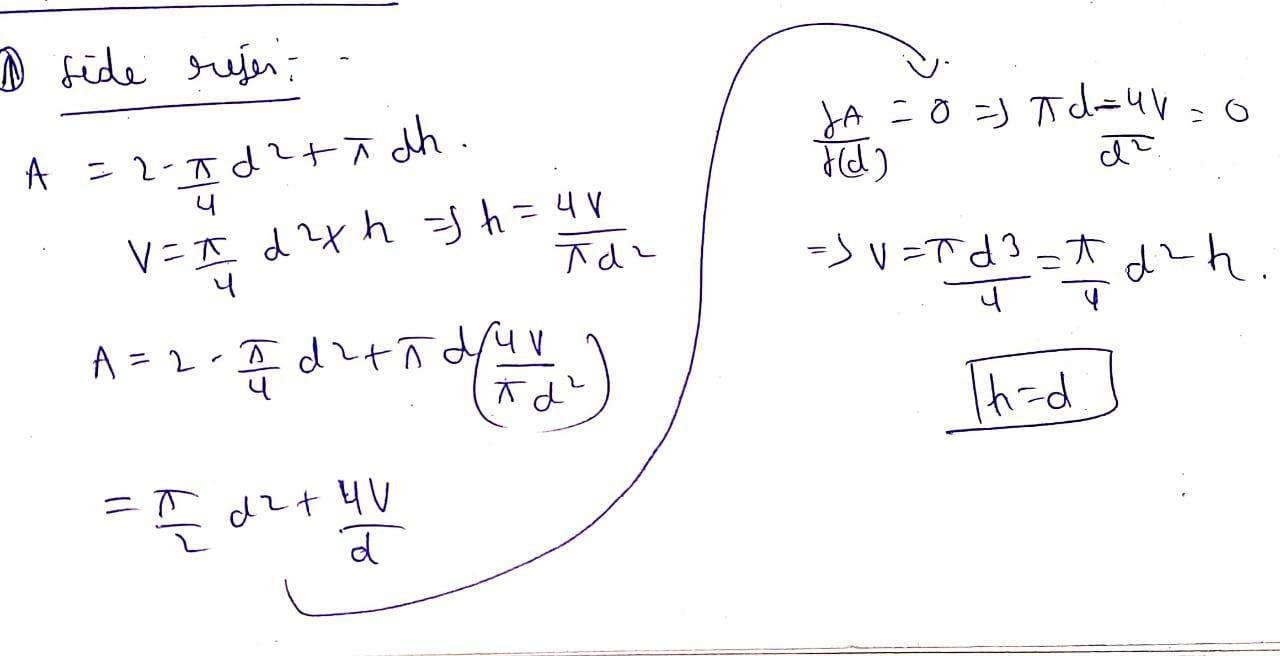 ① Side riser:-
A = 2 · π/4 d² + π dh.
V = π/4 d² × h ⇒ h = 4V/πd²
A = 2 · π/4 d² + π d (4V/πd²)
= π/2 d² + 4V/d
∂A/∂(d) = 0 ⇒ πd - 4V/d² = 0
⇒ V = πd³/4 = π/4 d² h.
h = d